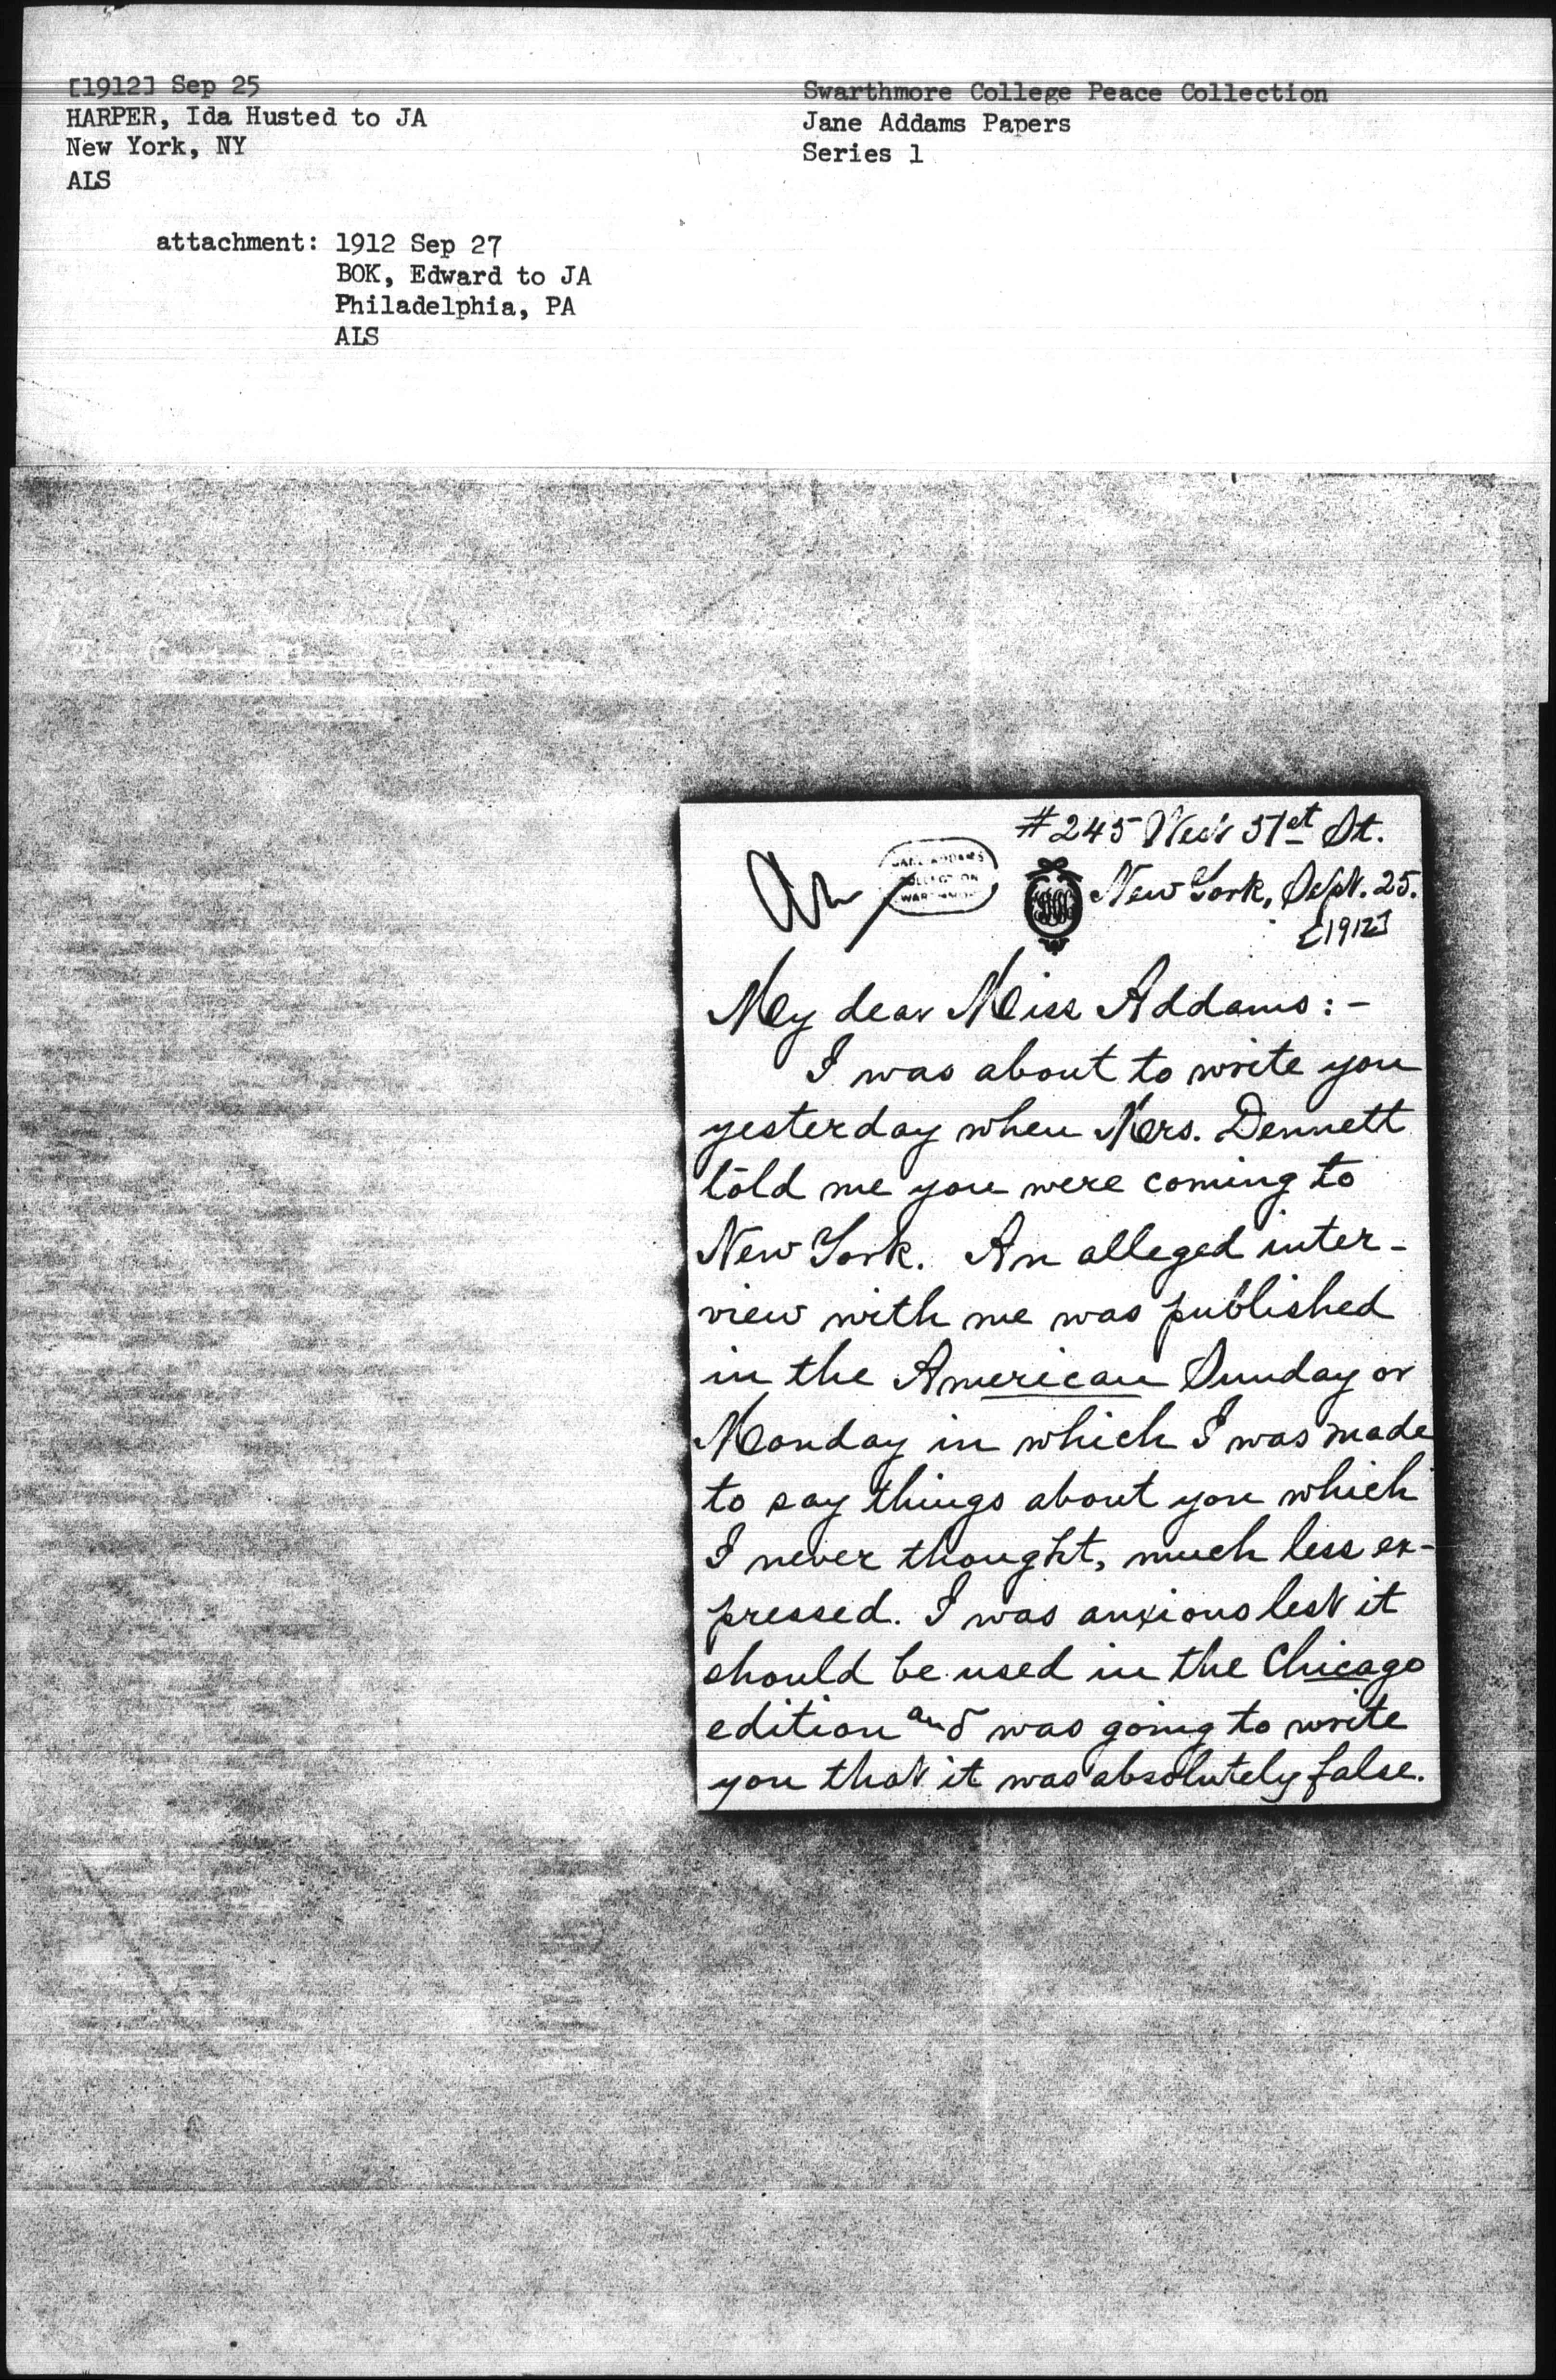 [1912] Sep 25
HARPER, Ida Husted to JA
New York, NY
ALS
Swarthmore College Peace Collection
Jane Addams Papers
Series 1
attachment: 1912 Sep 27
BOK, Edward to JA
Philadelphia, PA
ALS
#245 West 51st St.
JANE ADDAMS
COLLECTION
SWARTHMORE
New York, Sept. 25.
[1912]
My dear Miss Addams:-
I was about to write you
yesterday when Mrs. Dennett
told me you were coming to
New York. An alleged inter-
view with me was published
in the American Sunday or
Monday in which I was made
to say things about you which
I never thought, much less ex-
pressed. I was anxious lest it
should be used in the Chicago
edition and was going to write
you that it was absolutely false.